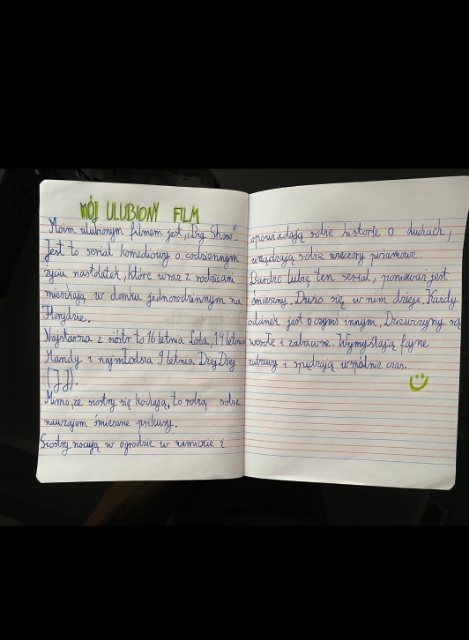 MÓJ ULUBIONY FILM
Moim ulubionym filmem jest „Big Show".
Jest to serial komediowy o codziennym
życiu nastolatek, które wraz z rodzicami
mieszkają w domku jednorodzinnym na
Florydzie.
Najstarsza z sióstr to 16 letnia Lola, 14 letnia
Mandy i najmłodsza 9 letnia Dżej Dżej
(J J).
Mimo, że siostry się kochają, to robią sobie
nawzajem śmieszne psikusy.
Siostry nocują w ogrodzie w namiocie i
opowiadają sobie historie o duchach,
urządzają sobie wieczory piżamowe.
Bardzo lubię ten serial, ponieważ jest
śmieszny. Dużo się w nim dzieje. Każdy
odcinek jest o czymś innym. Dziewczyny są
wesołe i zabawne. Wymyślają fajne
zabawy i spędzają wspólnie czas.